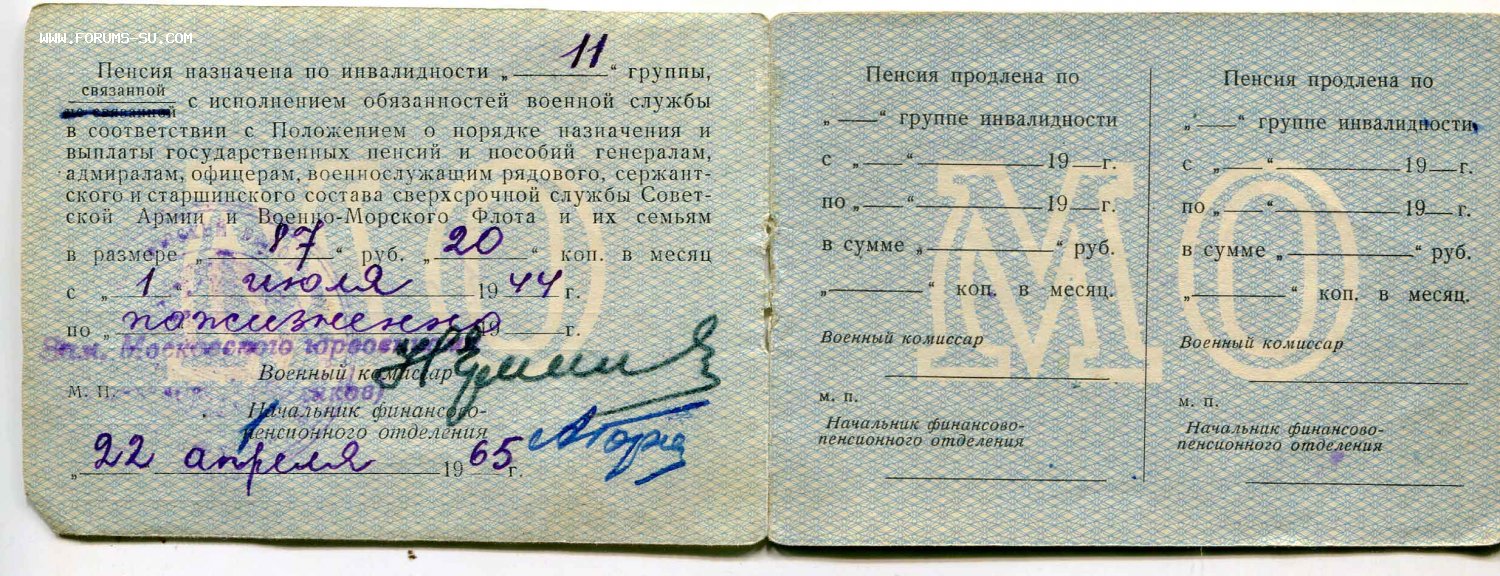 WWW.FORUMS-SU.COM
Пенсия назначена по инвалидности „11“ группы,
связанной
не связанной с исполнением обязанностей военной службы
в соответствии с Положением о порядке назначения и
выплаты государственных пенсий и пособий генералам,
адмиралам, офицерам, военнослужащим рядового, сержант-
ского и старшинского состава сверхсрочной службы Совет-
ской Армии и Военно-Морского Флота и их семьям
в размере „97“ руб. „20“ коп. в месяц
с „1“ июля 1944 г.
по „пожизненно 19 г.
Зам. Московского
Военный комиссар
м. п.
Начальник финансово-
пенсионного отделения
„22 апреля 1965 г.
МО
Пенсия продлена по
„ “ группе инвалидности
с „ “ 19 г.
по „ “ 19 г.
в сумме „ “ руб.
„ “ коп. в месяц.
Военный комиссар
м. п.
Начальник финансово-
пенсионного отделения
Пенсия продлена по
„ “ группе инвалидности
с „ “ 19 г.
по „ “ 19 г.
в сумме „ “ руб.
„ “ коп. в месяц.
Военный комиссар
м. п.
Начальник финансово-
пенсионного отделения
МО